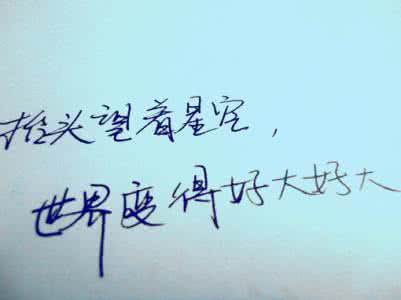 抬头望着星空，
世界变得好大好大